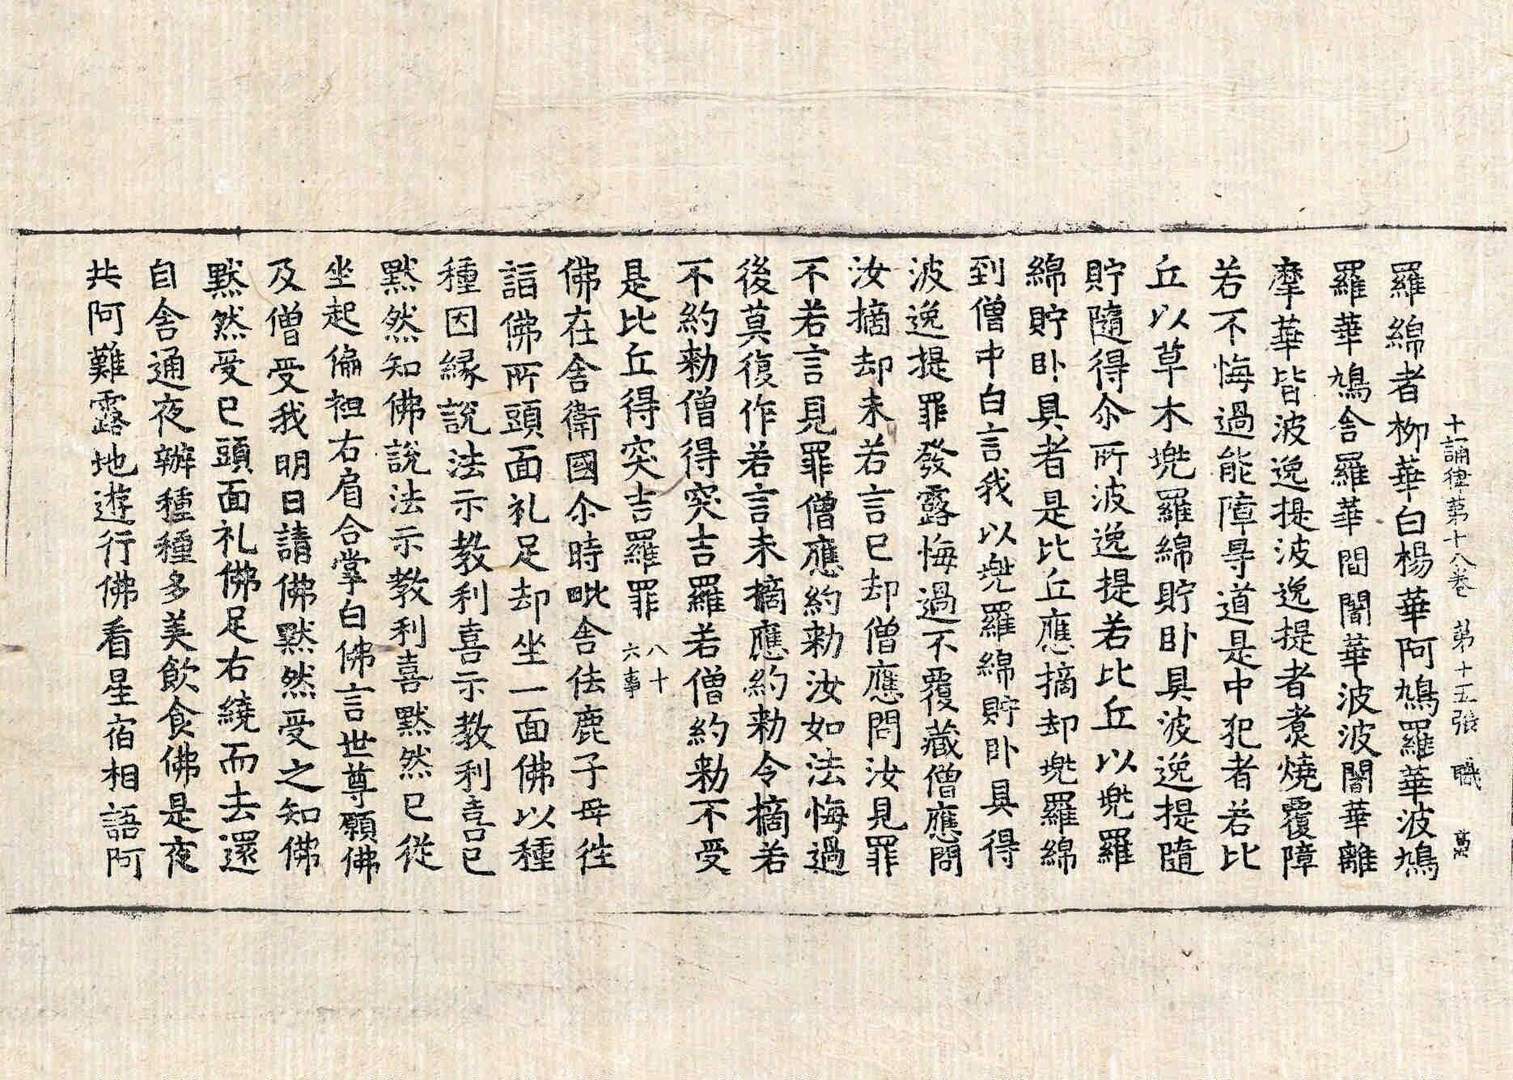 十誦律第十八卷　第十五張　職　萬
羅綿者柳華白楊華阿鳩羅華波鳩
羅華鳩舍羅華間闍華波波闍華離
摩華皆波逸提波逸提者煑燒覆障
若不悔過能障㝵道是中犯者若比
丘以草木兠羅綿貯卧具波逸提隨
貯隨得尒所波逸提若比丘以兠羅
綿貯卧具者是比丘應摘却兠羅綿
到僧中白言我以兠羅綿貯卧具得
波逸提罪發露悔過不覆藏僧應問
汝摘却未若言已却僧應問汝見罪
不若言見罪僧應約勑汝如法悔過
後莫復作若言未摘應約勑令摘若
不約勑僧得突吉羅若僧約勑不受
是比丘得突吉羅罪八十六事
佛在舍衛國尒時毗舍佉鹿子母往
詣佛所頭面礼足却坐一面佛以種
種因緣說法示教利喜示教利喜已
黙然知佛說法示教利喜黙然已從
坐起偏袒右肩合掌白佛言世尊願佛
及僧受我明日請佛黙然受之知佛
黙然受已頭面礼佛足右繞而去還
自舍通夜辦種種多美飲食佛是夜
共阿難露地遊行佛看星宿相語阿